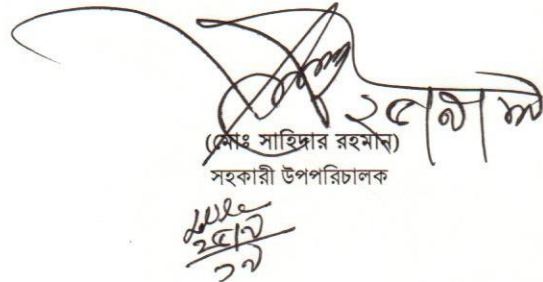 ২৫|৯|১৯
(মোঃ সাহিদার রহমান)
সহকারী উপপরিচালক
২৫|৯
১৯